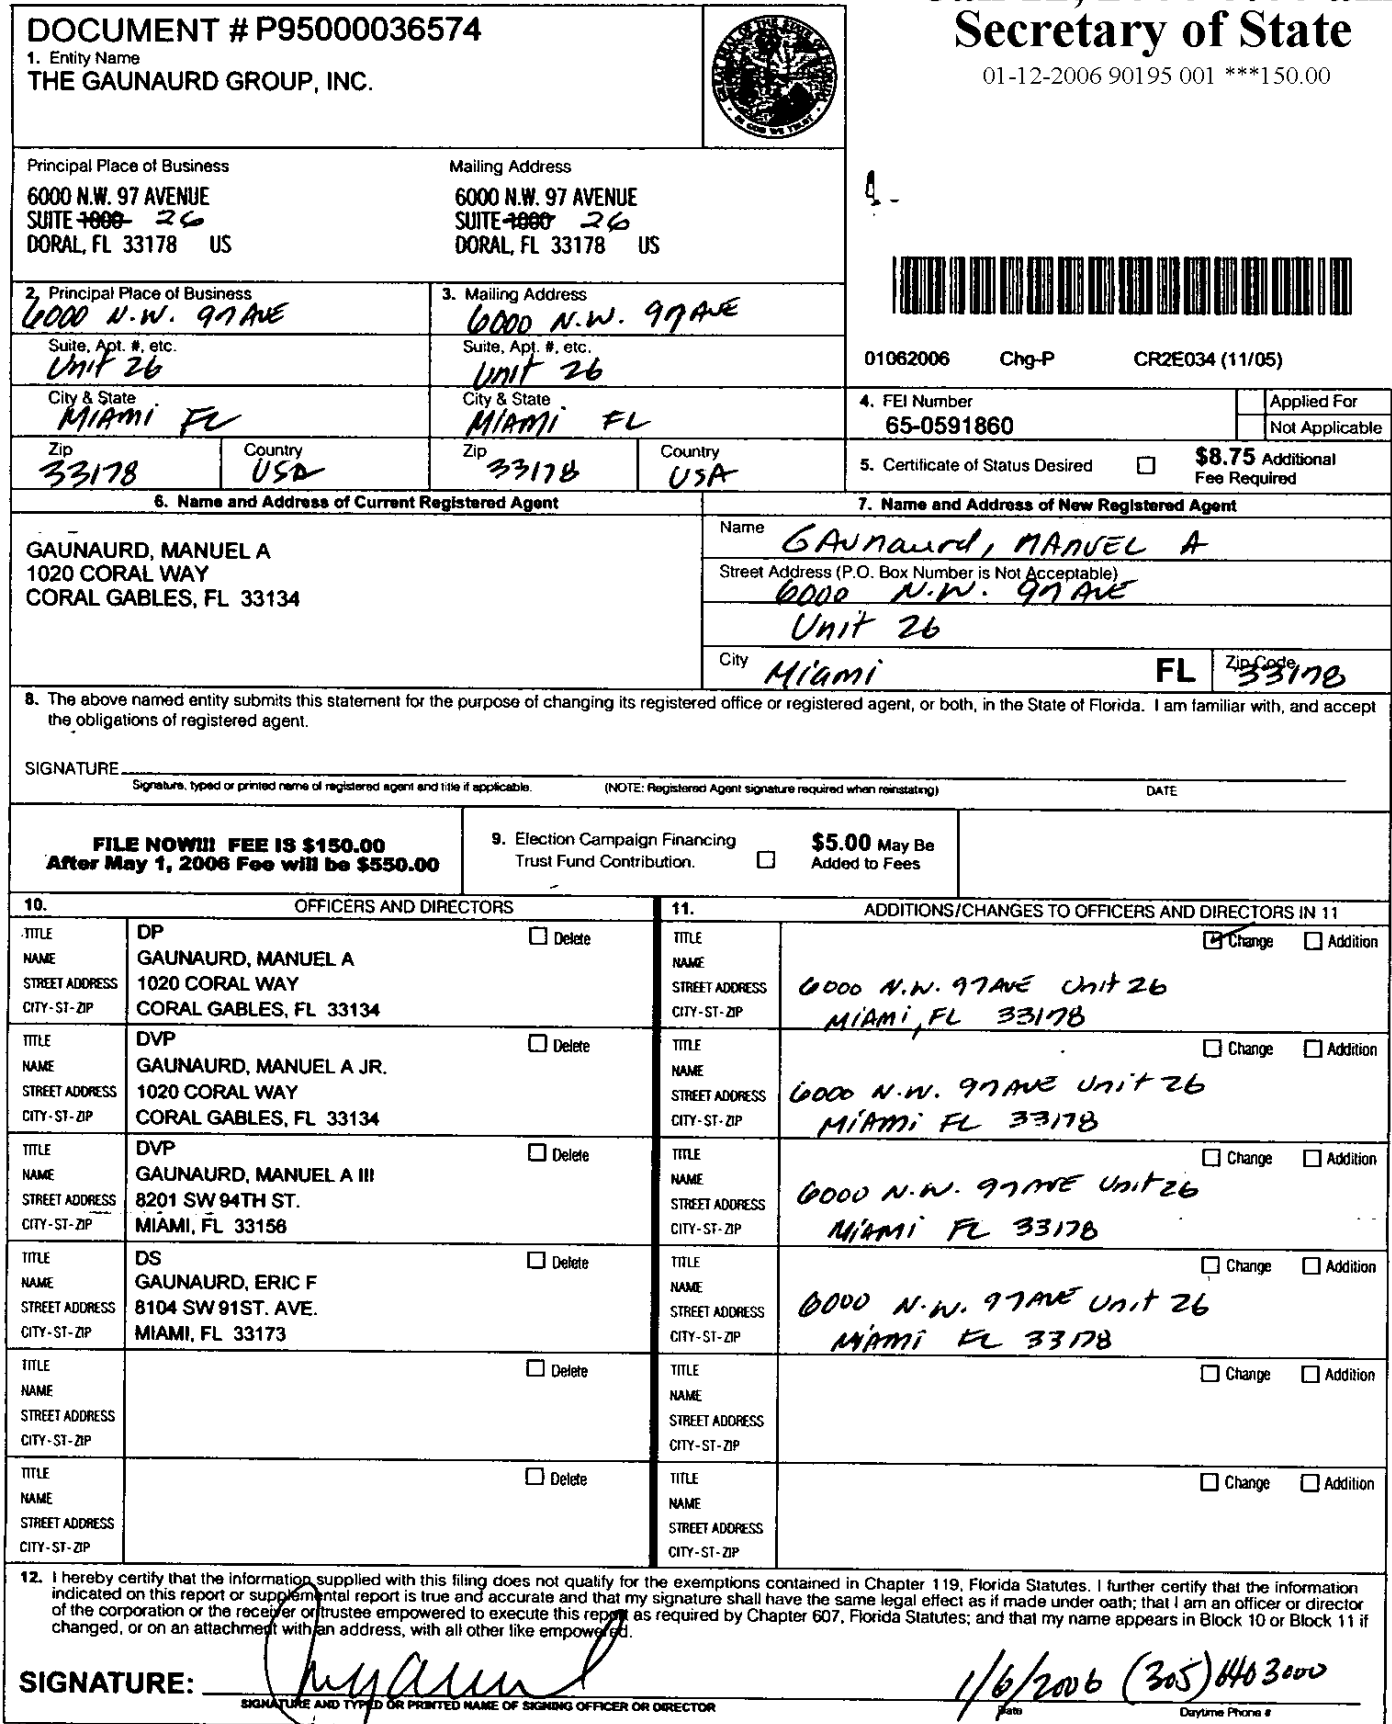 Secretary of State
01-12-2006 90195 001 ***150.00
DOCUMENT # P95000036574
1. Entity Name
THE GAUNAURD GROUP, INC.
Principal Place of Business
6000 N.W. 97 AVENUE
SUITE 1000 26
DORAL, FL 33178 US
Mailing Address
6000 N.W. 97 AVENUE
SUITE 1000 26
DORAL, FL 33178 US
2. Principal Place of Business
6000 N.W. 97 AVE
Suite, Apt. #, etc.
Unit 26
City & State
MIAMI FL
Zip
33178
Country
USA
3. Mailing Address
6000 N.W. 97 AVE
Suite, Apt. #, etc.
Unit 26
City & State
MIAMI FL
Zip
33178
Country
USA
01062006 Chg-P CR2E034 (11/05)
4. FEI Number
65-0591860
Applied For
Not Applicable
5. Certificate of Status Desired
$8.75 Additional
Fee Required
6. Name and Address of Current Registered Agent
GAUNAURD, MANUEL A
1020 CORAL WAY
CORAL GABLES, FL 33134
7. Name and Address of New Registered Agent
Name
GAUNAURD, MANUEL A
Street Address (P.O. Box Number is Not Acceptable)
6000 N.W. 97 AVE
Unit 26
City
Miami
FL
Zip Code
33178
8. The above named entity submits this statement for the purpose of changing its registered office or registered agent, or both, in the State of Florida. I am familiar with, and accept
the obligations of registered agent.
SIGNATURE
Signature, typed or printed name of registered agent and title if applicable. (NOTE: Registered Agent signature required when reinstating) DATE
FILE NOW!!! FEE IS $150.00
After May 1, 2006 Fee will be $550.00
9. Election Campaign Financing
Trust Fund Contribution.
$5.00 May Be
Added to Fees
10. OFFICERS AND DIRECTORS
TITLE DP Delete
NAME GAUNAURD, MANUEL A
STREET ADDRESS 1020 CORAL WAY
CITY-ST-ZIP CORAL GABLES, FL 33134
TITLE DVP Delete
NAME GAUNAURD, MANUEL A JR.
STREET ADDRESS 1020 CORAL WAY
CITY-ST-ZIP CORAL GABLES, FL 33134
TITLE DVP Delete
NAME GAUNAURD, MANUEL A III
STREET ADDRESS 8201 SW 94TH ST.
CITY-ST-ZIP MIAMI, FL 33156
TITLE DS Delete
NAME GAUNAURD, ERIC F
STREET ADDRESS 8104 SW 91ST. AVE.
CITY-ST-ZIP MIAMI, FL 33173
TITLE Delete
NAME
STREET ADDRESS
CITY-ST-ZIP
TITLE Delete
NAME
STREET ADDRESS
CITY-ST-ZIP
11. ADDITIONS/CHANGES TO OFFICERS AND DIRECTORS IN 11
TITLE Change Addition
NAME
STREET ADDRESS 6000 N.W. 97 AVE Unit 26
CITY-ST-ZIP MIAMI, FL 33178
TITLE Change Addition
NAME
STREET ADDRESS 6000 N.W. 97 AVE Unit 26
CITY-ST-ZIP MIAMI FL 33178
TITLE Change Addition
NAME
STREET ADDRESS 6000 N.W. 97 AVE Unit 26
CITY-ST-ZIP MIAMI FL 33178
TITLE Change Addition
NAME
STREET ADDRESS 6000 N.W. 97 AVE Unit 26
CITY-ST-ZIP MIAMI FL 33178
TITLE Change Addition
NAME
STREET ADDRESS
CITY-ST-ZIP
TITLE Change Addition
NAME
STREET ADDRESS
CITY-ST-ZIP
12. I hereby certify that the information supplied with this filing does not qualify for the exemptions contained in Chapter 119, Florida Statutes. I further certify that the information
indicated on this report or supplemental report is true and accurate and that my signature shall have the same legal effect as if made under oath; that I am an officer or director
of the corporation or the receiver or trustee empowered to execute this report as required by Chapter 607, Florida Statutes; and that my name appears in Block 10 or Block 11 if
changed, or on an attachment with an address, with all other like empowered.
SIGNATURE: 1/6/2006 (305)
SIGNATURE AND TYPED OR PRINTED NAME OF SIGNING OFFICER OR DIRECTOR Date Daytime Phone #